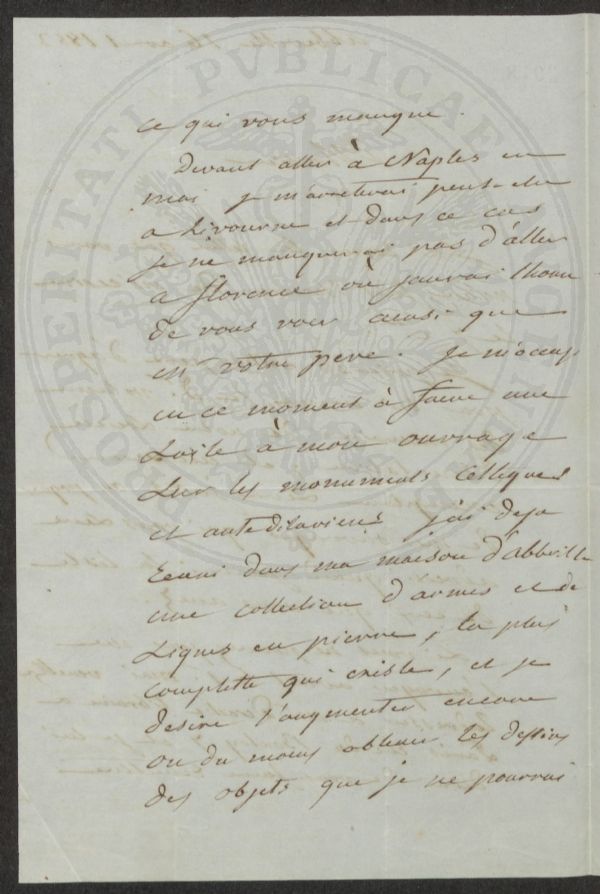 ce qui vous manque.
Devant aller à Naples en
mai je m'arreterai peut-etre
a Livourne et dans ce cas
je ne manquerai pas d'aller
a florence où j'aurai l'honn
de vous voir ainsi que
Mr votre pere. Je m'occup
en ce moment à faire une
suite à mon ouvrage
sur les monuments Celtiques
et antediluviens j'ai deja
reuni dans ma maison d'Abbeville
une collection d'armes et de
signes en pierre, la plus
complette qui existe, et je
desire l'augmenter encore
ou du moins obtenir les dessins
des objets que je ne pourrai
PROSPERITATI PVBLICAE